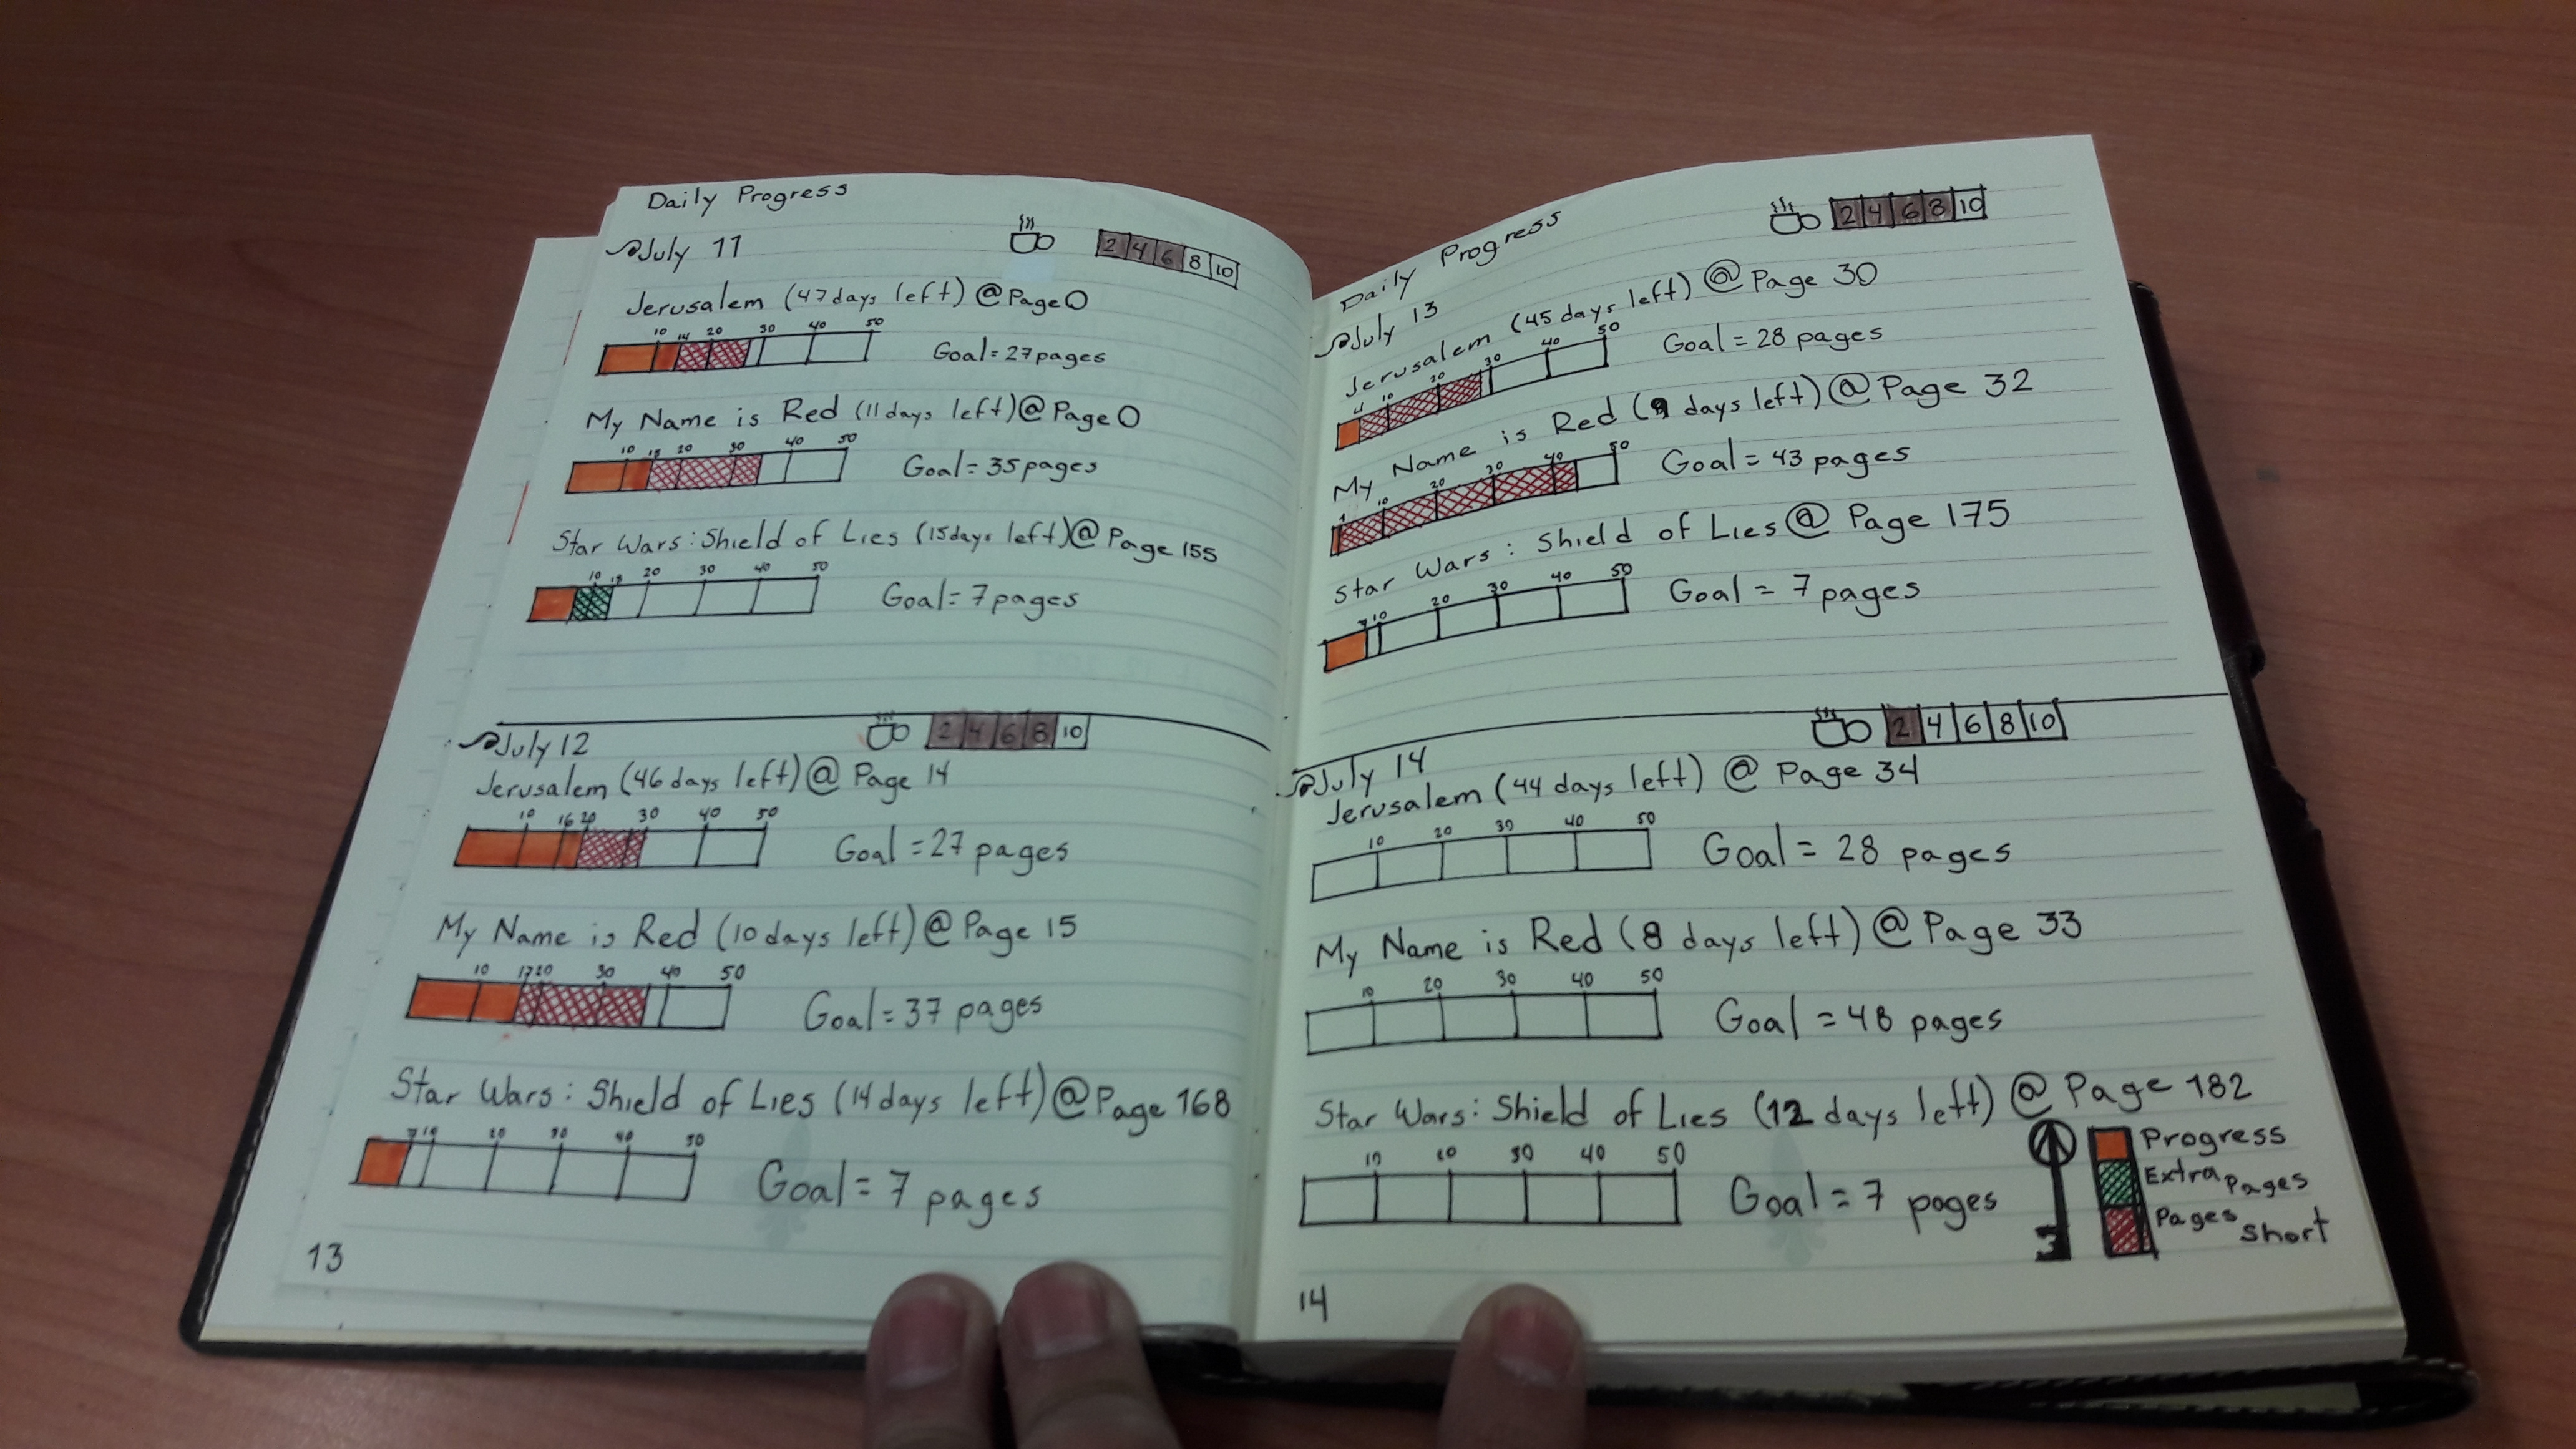 Daily Progress
July 11
2 4 6 8 10
Jerusalem (47 days left) @ Page 0
10 14 20 30 40 50
Goal = 27 pages
My Name is Red (11 days left) @ Page 0
10 15 20 30 40 50
Goal = 35 pages
Star Wars: Shield of Lies (15 days left) @ Page 155
10 13 20 30 40 50
Goal = 7 pages
July 12
2 4 6 8 10
Jerusalem (46 days left) @ Page 14
10 16 20 30 40 50
Goal = 27 pages
My Name is Red (10 days left) @ Page 15
10 17 20 30 40 50
Goal = 37 pages
Star Wars: Shield of Lies (14 days left) @ Page 168
7 10 20 30 40 50
Goal = 7 pages
13
Daily Progress
2 4 6 8 10
July 13
Jerusalem (45 days left) @ Page 30
4 10 20 30 40 50
Goal = 28 pages
My Name is Red (9 days left) @ Page 32
1 10 20 30 40 50
Goal = 43 pages
Star Wars: Shield of Lies @ Page 175
7 10 20 30 40 50
Goal = 7 pages
July 14
2 4 6 8 10
Jerusalem (44 days left) @ Page 34
10 20 30 40 50
Goal = 28 pages
My Name is Red (8 days left) @ Page 33
10 20 30 40 50
Goal = 48 pages
Star Wars: Shield of Lies (12 days left) @ Page 182
10 20 30 40 50
Goal = 7 pages
Progress
Extra Pages
Pages Short
14